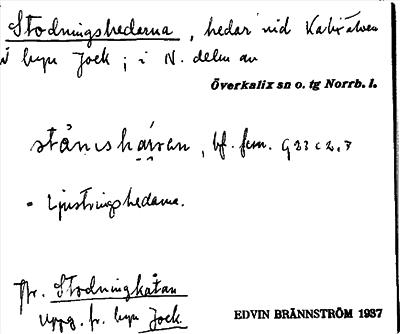 Stodningshedarna, hedar vid Kalixälven
i byn Jock; i N. delen av
Överkalix sn o. tg Norrb. l.
bf. fem. G 23 c 2, 7
= Ljustringshedarna.
Jfr. Stodningkåtan
Uppg. fr. byn Jock
EDVIN BRÄNNSTRÖM 1937